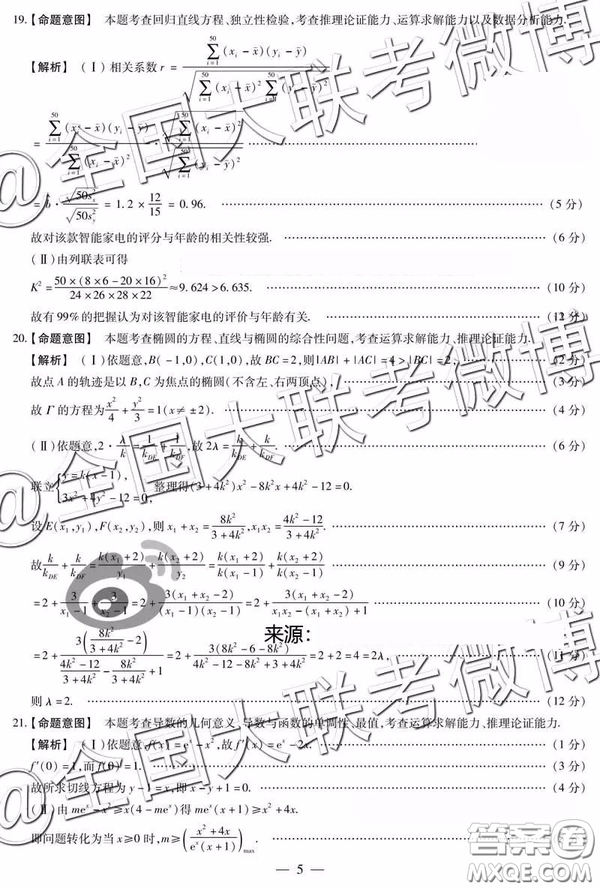 19.【命题意图】 本题考查回归直线方程、独立性检验,考查推理论证能力、运算求解能力以及数据分析能力.
【解析】 (Ⅰ)相关系数 r = \frac{\sum_{i=1}^{50}(x_i-\bar{x})(y_i-\bar{y})}{\sqrt{\sum_{i=1}^{50}(x_i-\bar{x})^2\sum_{i=1}^{50}(y_i-\bar{y})^2}}
= \frac{\sum_{i=1}^{50}(x_i-\bar{x})(y_i-\bar{y})}{\sum_{i=1}^{50}(x_i-\bar{x})^2} · \frac{\sqrt{\sum_{i=1}^{50}(x_i-\bar{x})^2}}{\sqrt{\sum_{i=1}^{50}(y_i-\bar{y})^2}}
= \hat{b} · \frac{\sqrt{50s_x^2}}{\sqrt{50s_y^2}} = 1.2 × \frac{12}{15} = 0.96. (5 分)
故对该款智能家电的评分与年龄的相关性较强. (6 分)
(Ⅱ)由列联表可得
K² = \frac{50×(8×6-20×16)^2}{24×26×28×22} ≈9.624>6.635. (10 分)
故有 99%的把握认为对该智能家电的评价与年龄有关. (12 分)
20.【命题意图】 本题考查椭圆的方程、直线与椭圆的综合性问题,考查运算求解能力、推理论证能力.
【解析】 (Ⅰ)依题意,B(-1,0),C(1,0),故 BC=2,则|AB|+|AC|=4>|BC|=2, (2 分)
故点 A 的轨迹是以 B,C 为焦点的椭圆(不含左、右两顶点), (3 分)
故 Γ 的方程为 \frac{x^2}{4}+\frac{y^2}{3}=1(x≠±2). (4 分)
(Ⅱ)依题意,2·\frac{λ}{k}=\frac{1}{k_{DE}}+\frac{1}{k_{DF}},故 2λ=\frac{k}{k_{DE}}+\frac{k}{k_{DF}}. (6 分)
联立{y=k(x-1), 3x²+4y²-12=0, 整理得(3+4k²)x²-8k²x+4k²-12=0.
设 E(x₁,y₁),F(x₂,y₂),则 x₁+x₂=\frac{8k^2}{3+4k^2},x₁x₂=\frac{4k^2-12}{3+4k^2}. (7 分)
故\frac{k}{k_{DE}}+\frac{k}{k_{DF}}=\frac{k(x_1+2)}{y_1}+\frac{k(x_2+2)}{y_2}=\frac{k(x_1+2)}{k(x_1-1)}+\frac{k(x_2+2)}{k(x_2-1)} (9 分)
=2+\frac{3}{x_1-1}+\frac{3}{x_2-1}=2+\frac{3(x_1+x_2-2)}{(x_1-1)(x_2-1)}=2+\frac{3(x_1+x_2-2)}{x_1x_2-(x_1+x_2)+1} (10 分)
来源:
=2+\frac{3(\frac{8k^2}{3+4k^2}-2)}{\frac{4k^2-12}{3+4k^2}-\frac{8k^2}{3+4k^2}+1}=2+\frac{3(8k^2-6-8k^2)}{4k^2-12-8k^2+3+4k^2}=2+2=4=2λ, (11 分)
则 λ=2. (12 分)
21.【命题意图】 本题考查导数的几何意义、导数与函数的单调性、最值,考查运算求解能力、推理论证能力.
【解析】 (Ⅰ)依题意,f(x)=eˣ-x²,故 f′(x)=eˣ-2x. (1 分)
f′(0)=1,而 f(0)=1. (2 分)
故所求切线方程为 y-1=x,即 x-y+1=0. (4 分)
(Ⅱ)由 meˣ-x²≥x(4-meˣ)得 meˣ(x+1)≥x²+4x.
即问题转化为当 x≥0 时,m≥(\frac{x^2+4x}{e^x(x+1)})_{max}.
— 5 —
@全国大联考微博
@全国大联考微博
@全国大联考微博
答案圈
MXQE.COM